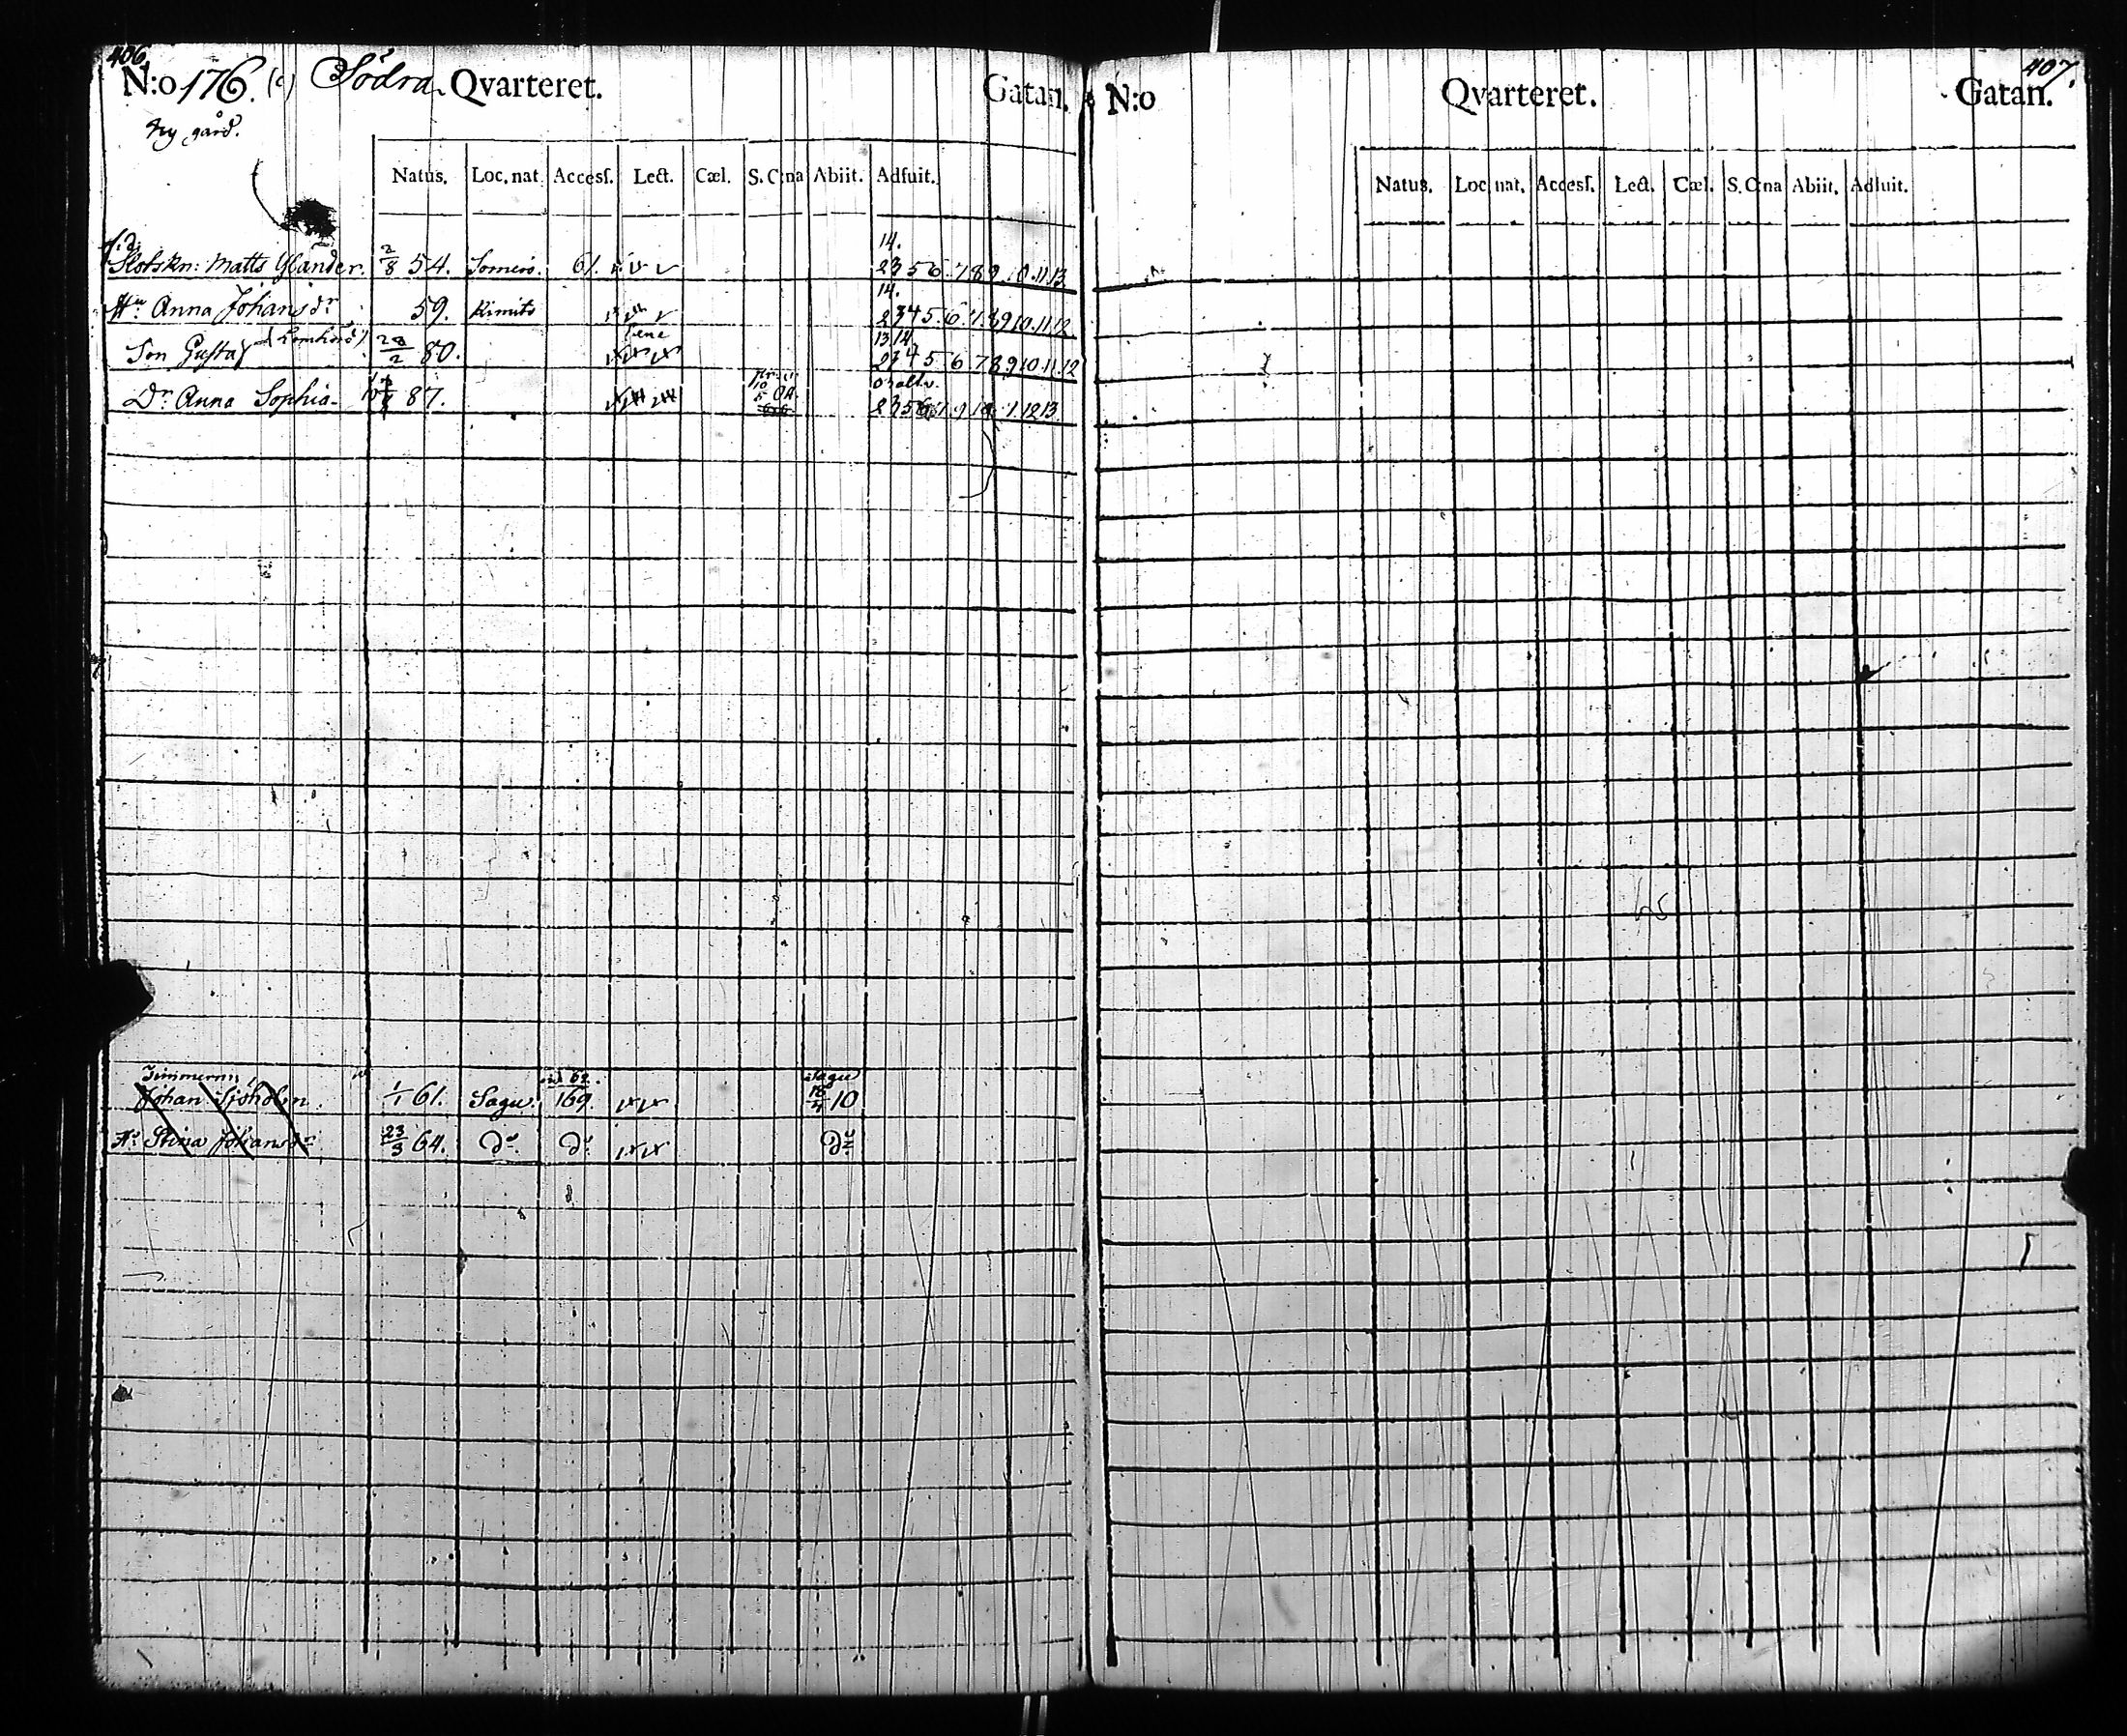 406.
N:o 176. (c) Södra Qvarteret. Gatan.
Ny gård.
Natus. Loc. nat. Access. Lect. Cæl. S. Cœna Abiit. Adfuit.
14.
Slotskn: Matts Ylander. 2/8 54. Somero. 61. 2 3 5 6 7 8 9 10 11 13
14.
Hu Anna Johansdr 59. Kimito 2 3 4 5 6 7 8 9 10 11 12
13 14
Son Gustaf 28/2 80. 2 3 4 5 6 7 8 9 10 11 12
Dr Anna Sophia 87.
Timmerm
Johan Sjöholm 1/1 61. Sagu. 169. Sagu 18/4 10
Hu Stina Johansdr 23/3 64. Do. Do. Do
407.
N:o Qvarteret. Gatan.
Natus. Loc. nat. Access. Lect. Cæl. S. Cœna Abiit. Adfuit.